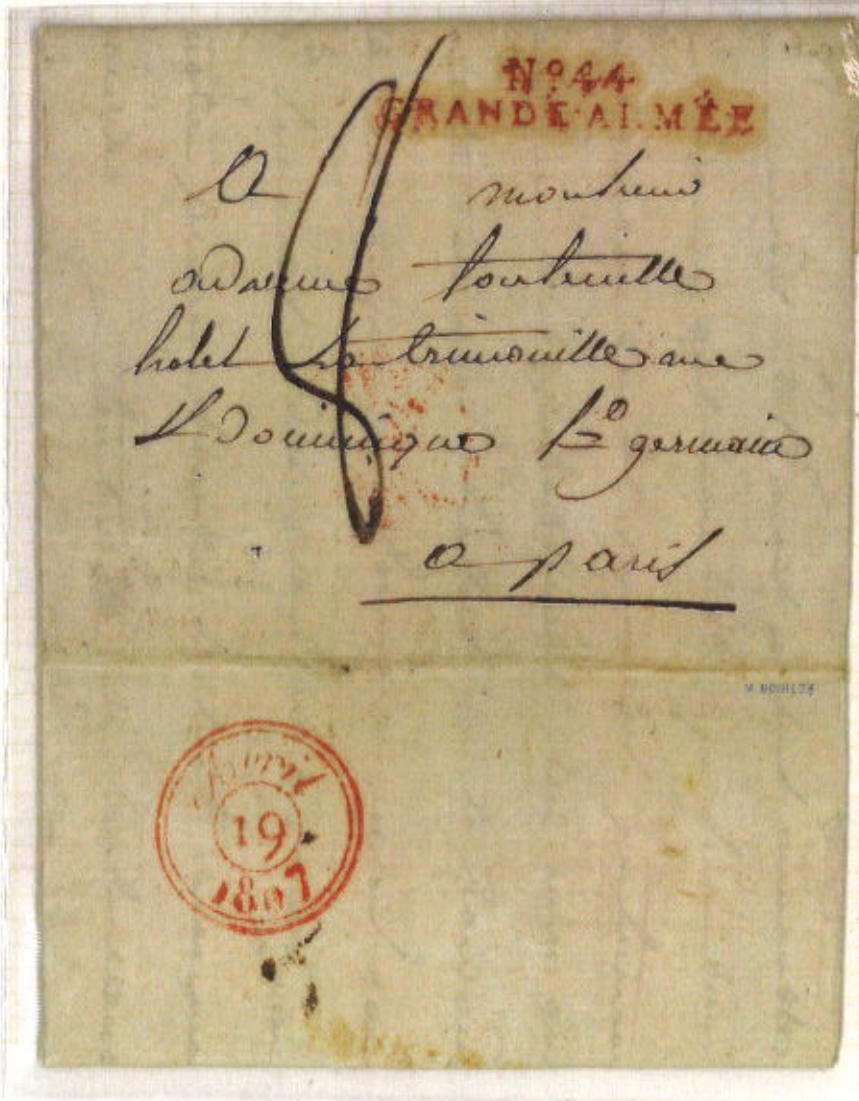 Nº 44
GRANDE ARMÉE
A monsieur
hotel La trimouille rue
St Dominique fg germain
a paris
Avril
19
1807